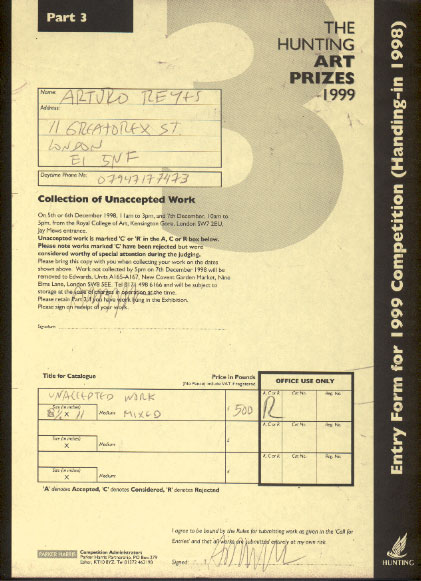 Part 3
THE
HUNTING
ART
PRIZES
1999
3
Name: ARTURO REYES
Address:
11 GREATOREX ST.
LONDON
E1 5NF
Daytime Phone No: 07947177473
Collection of Unaccepted Work
On 5th or 6th December 1998, 11am to 3pm, and 7th December, 10am to
5pm, from the Royal College of Art, Kensington Gore, London SW7 2EU,
Jay Mews entrance.
Unaccepted work is marked 'C' or 'R' in the A, C or R box below.
Please note works marked 'C' have been rejected but were
considered worthy of special attention during the judging.
Please bring this copy with you when collecting your work on the dates
shown above. Work not collected by 5pm on 7th December 1998 will be
removed to Edwards, Units A165-A167, New Covent Garden Market, Nine
Elms Lane, London SW8 5EE. Tel 0171 498 6166 and will be subject to
storage at the scale of charges in operation at the time.
Please retain Part 3 if you have work hung in the Exhibition.
Please sign on receipt of your work.
Signature
Title for Catalogue
Price in Pounds
(No Pence) include VAT if registered
OFFICE USE ONLY
UNACCEPTED WORK
Size (in inches) X 11 Medium MIXED £ 500
A, C or R Cat No. Reg. No.
R
Size (in inches) X Medium £
A, C or R Cat No. Reg. No.
Size (in inches) X Medium £
A, C or R Cat No. Reg. No.
'A' denotes Accepted, 'C' denotes Considered, 'R' denotes Rejected
I agree to be bound by the Rules for submitting work as given in the 'Call for
Entries' and that all works are submitted entirely at my own risk.
Signed
PARKER HARRIS
Competition Administrators
Parker Harris Partnership, PO Box 279
Esher, KT10 8YZ. Tel 01372 462190
Entry Form for 1999 Competition (Handing-in 1998)
HUNTING